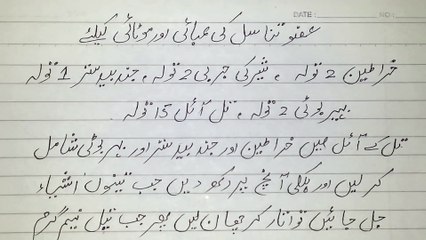 DATE: NO:
عضو تناسل کی لمبائی اور موٹائی کیلئے
خراطین 2 تولہ ، شیر کی چربی 2 تولہ ، جندبیدستر 1 تولہ
بیر بوٹی 2 تولہ ، تل آئل 15 تولہ .
تل کے آئل میں خراطین اور جند بیدستر اور بیر بوٹی شامل
کر لیں اور ہلکی آنچ پر رکھ دیں جب تینوں اشیاء
جل جائیں تو اتار کر چھان لیں پھر جب تیل نیم گرم